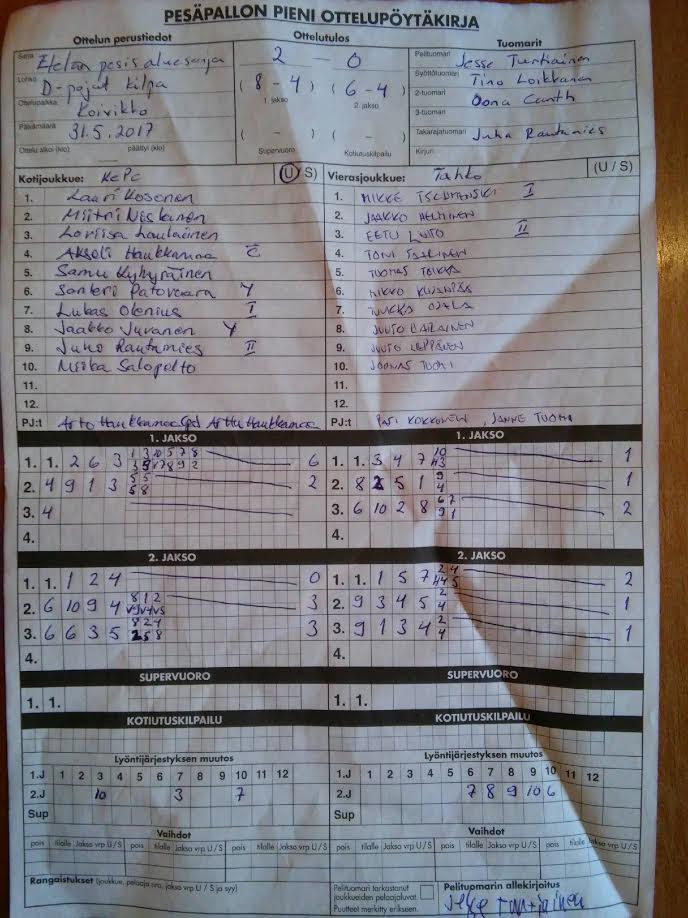 PESÄPALLON PIENI OTTELUPÖYTÄKIRJA
Ottelun perustiedot Ottelutulos Tuomarit
Sarja Etelän pesis aluesarja
Lohko D-pojat kilpa
Ottelupaikka Koivikko
Päivämäärä 31.5.2017
Ottelu alkoi (klo) päättyi (klo)
2 - 0
(8 - 4) (6 - 4)
1. jakso 2. jakso
( - ) ( - )
Supervuoro Kotiutuskilpailu
Pelituomari Jesse Tuntiainen
Syöttötuomari Tino Loikkanen
2-tuomari Oona Canth
3-tuomari
Takarajatuomari Juha Rautamies
Kirjuri
Kotijoukkue: KePe (U/S)
1. Lauri Kosonen
2. Miitri Niskanen
3. Loviisa Laulainen
4. Akseli Haukkamaa C
5. Samu Kyhyräinen
6. Santeri Patovaara Y
7. Lukas Olenius I
8. Jaakko Juvanen Y
9. Juho Rautamies II
10. Miika Salopelto
11.
12.
PJ:t Arto Haukkamaa Arttu Haukkamaa
Vierasjoukkue: Tahko (U / S)
1. MIKKE I
2. JAAKKO HELMINEN
3. EETU II
4. TONI
5. TUOMAS TOIKKA
6. MIKKO
7. TUUKKA OJALA
8. JUUSO
9. JUUSO LEPPÄNEN
10. JOONAS TUOMI
11.
12.
PJ:t PASI KOKKONEN, JANNE TUOMI
1. JAKSO 1. JAKSO
1. 1. 2 6 3 6
2. 4 9 1 3 5 5 5 8 2
3. 4
4.
1. 1. 3 4 7 1
2. 8 2 5 1 9 4 1
3. 6 10 2 8 6 7 9 1 2
4.
2. JAKSO 2. JAKSO
1. 1. 1 2 4 0
2. 6 10 9 4 8 1 2 3
3. 6 6 3 5 8 2 4 2 5 8 3
4.
1. 1. 1 5 7 2 4 2
2. 9 3 4 5 2 4 1
3. 9 1 3 4 2 4 1
4.
SUPERVUORO SUPERVUORO
1. 1. 1. 1.
KOTIUTUSKILPAILU KOTIUTUSKILPAILU
Lyöntijärjestyksen muutos
1.J 1 2 3 4 5 6 7 8 9 10 11 12
2.J 10 3 7
Sup
Lyöntijärjestyksen muutos
1.J 1 2 3 4 5 6 7 8 9 10 11 12
2.J 7 8 9 10 6
Sup
Vaihdot Vaihdot
pois tilalle Jakso vrp U/S pois tilalle Jakso vrp U/S pois tilalle Jakso vrp U/S pois tilalle Jakso vrp U/S
Rangaistukset (joukkue, pelaaja nro, jakso vrp U / S ja syy)
Pelituomari tarkastanut
joukkueiden pelaajaluvat
Puutteet merkitty erikseen.
Pelituomarin allekirjoitus
Jesse Tuntiainen